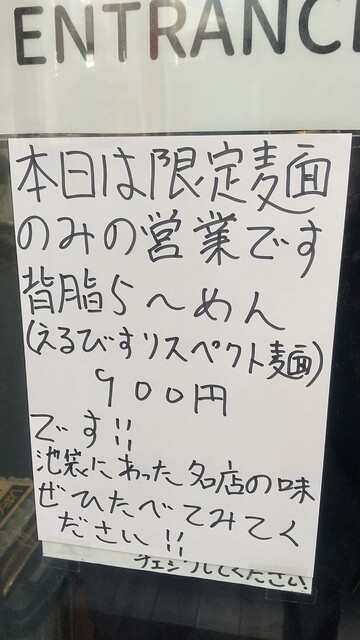 ENTRANCE
本日は限定麺
のみの営業です
背脂らーめん
(えるびすリスペクト麺)
900円
です!!
池袋にあった名店の味
ぜひたべてみてく
ださい!!
チェックしてください!